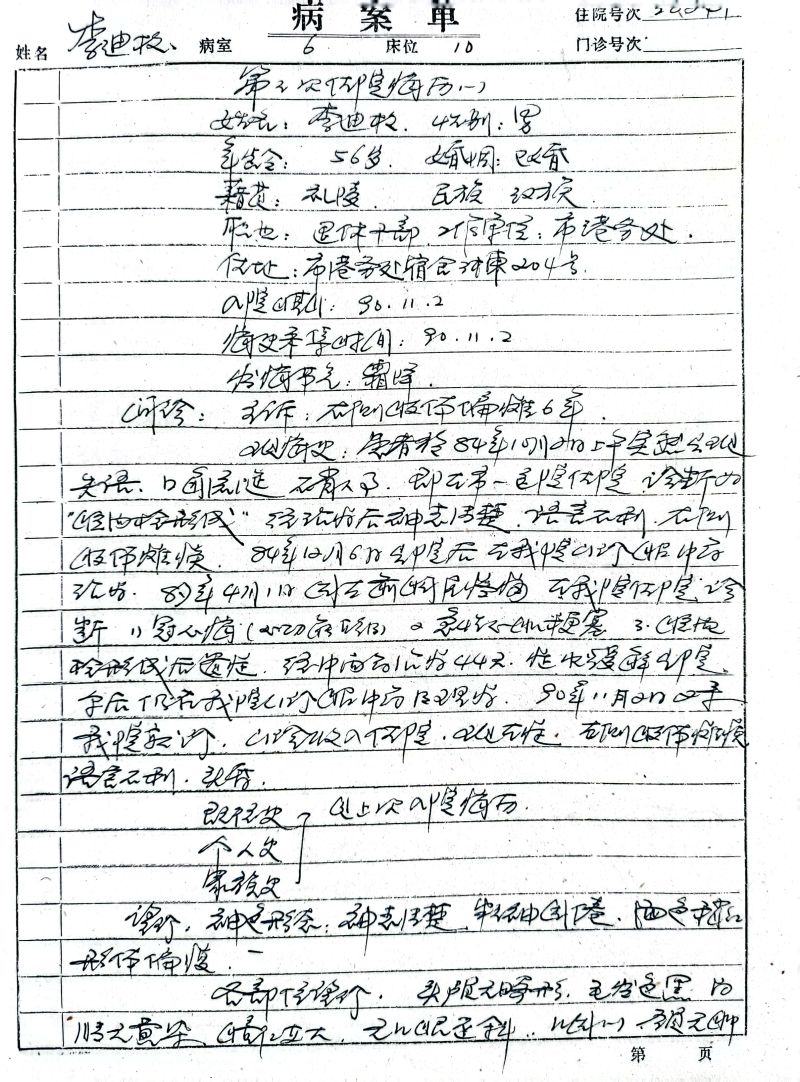 病案单
住院号次
姓名 李迪牧 病室 6 床位 10 门诊号次
第2次住院病历(一)
姓名：李迪牧 性别：男
年龄：56岁 婚姻：已婚
籍贯：礼陵 民族 汉族
职业：退休干部 工作单位：市港务处.
住址：市港务处宿舍 204号
入院日期：90.11.2
病史采集时间：90.11.2
发病节气：霜降.
问诊：主诉：右侧肢体偏瘫6年.
现病史：患者于84年10月2日上午突然出现
失语、口角流涎 即在市一医院住院 诊断为
"脑内栓形成" 经治疗后神志清楚,语言不利,右侧
肢体瘫痪. 84年12月6日出院后在我院门诊服中药
治疗. 89年4月11日 在我院住院,诊
断 1)冠心病 2 急性心肌梗塞 3.脑血
栓形成后遗症. 经中西药治疗44天.症状缓解出院.
今后仍在我院门诊服中药治疗. 90年11月2日
我院就诊,门诊收入住院.现在症.右侧肢体瘫痪
语言不利.头昏.
既往史 见上次入院病历.
个人史
家族史
望诊,神色形态:神志清楚,
形体偏瘦.
各部位望诊.头颅无畸形.毛发色黑
无黄染
第 页